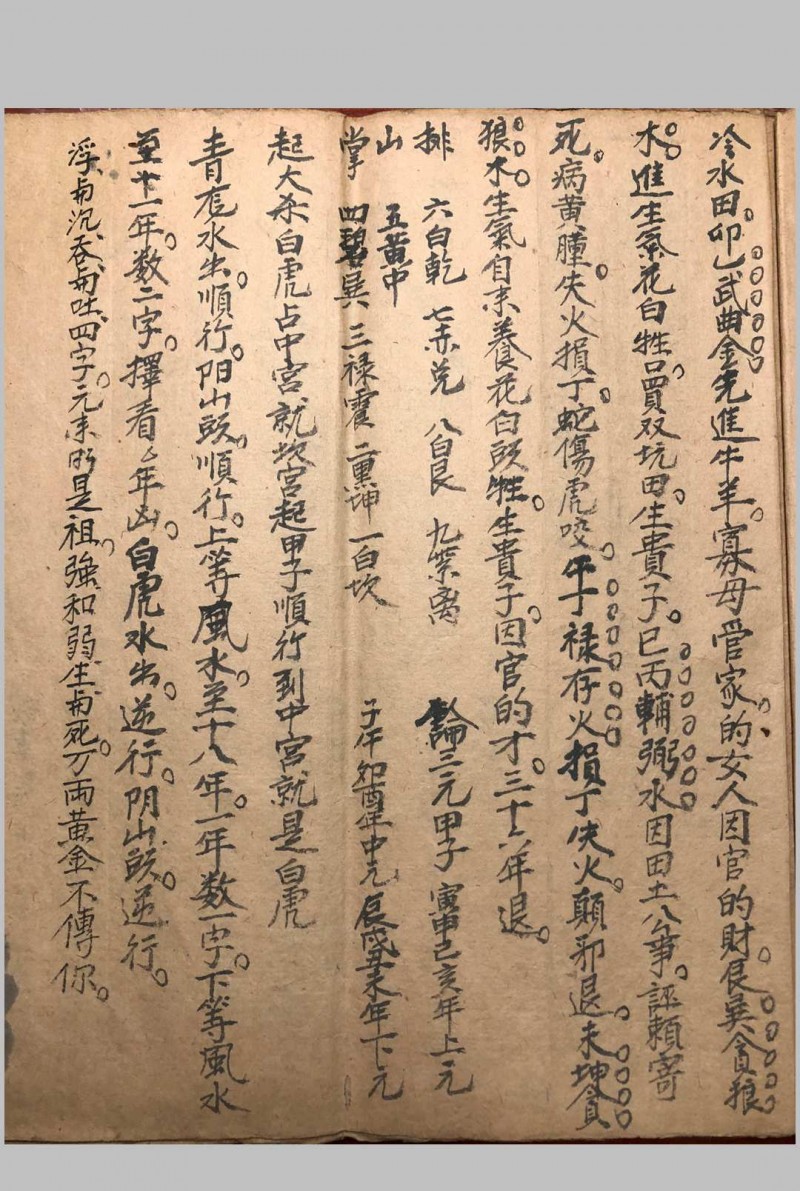 冷水田。卯乙武曲金先進牛羊。寡母管家。的女人因官的財。艮巽貪狼
木。進生氣花白牲。買双坑田。生貴子。巳丙輔弼水因田土公事。誣賴寄
死。病黄腫。失火損丁。蛇傷虎咬。午丁禄存火損丁失火。顛邪退。未坤貪
狼木生氣自来養花白頭牲。生貴子。因官的才。三十六年退。
排 六白乾 七赤兑 八白艮 九紫离 論三元甲子 寅申巳亥年上元
山 五黄中
掌 四碧巽 三禄震 二黑坤 一白坎 子午卯酉年中元 辰戌丑未年下元
起大杀白虎占中宫就坎宫起甲子順行到中宫就是白虎
青龙水出。順行。阳山頭。順行。上等風水。至十八年。一年数一字。下等風水
至十一年。数二字。擇看々年凶。白虎水出。逆行。阴山頭。逆行。
浮与沉、吞与吐、四字。元来的是祖。強和弱生与死。万両黄金不傳你。